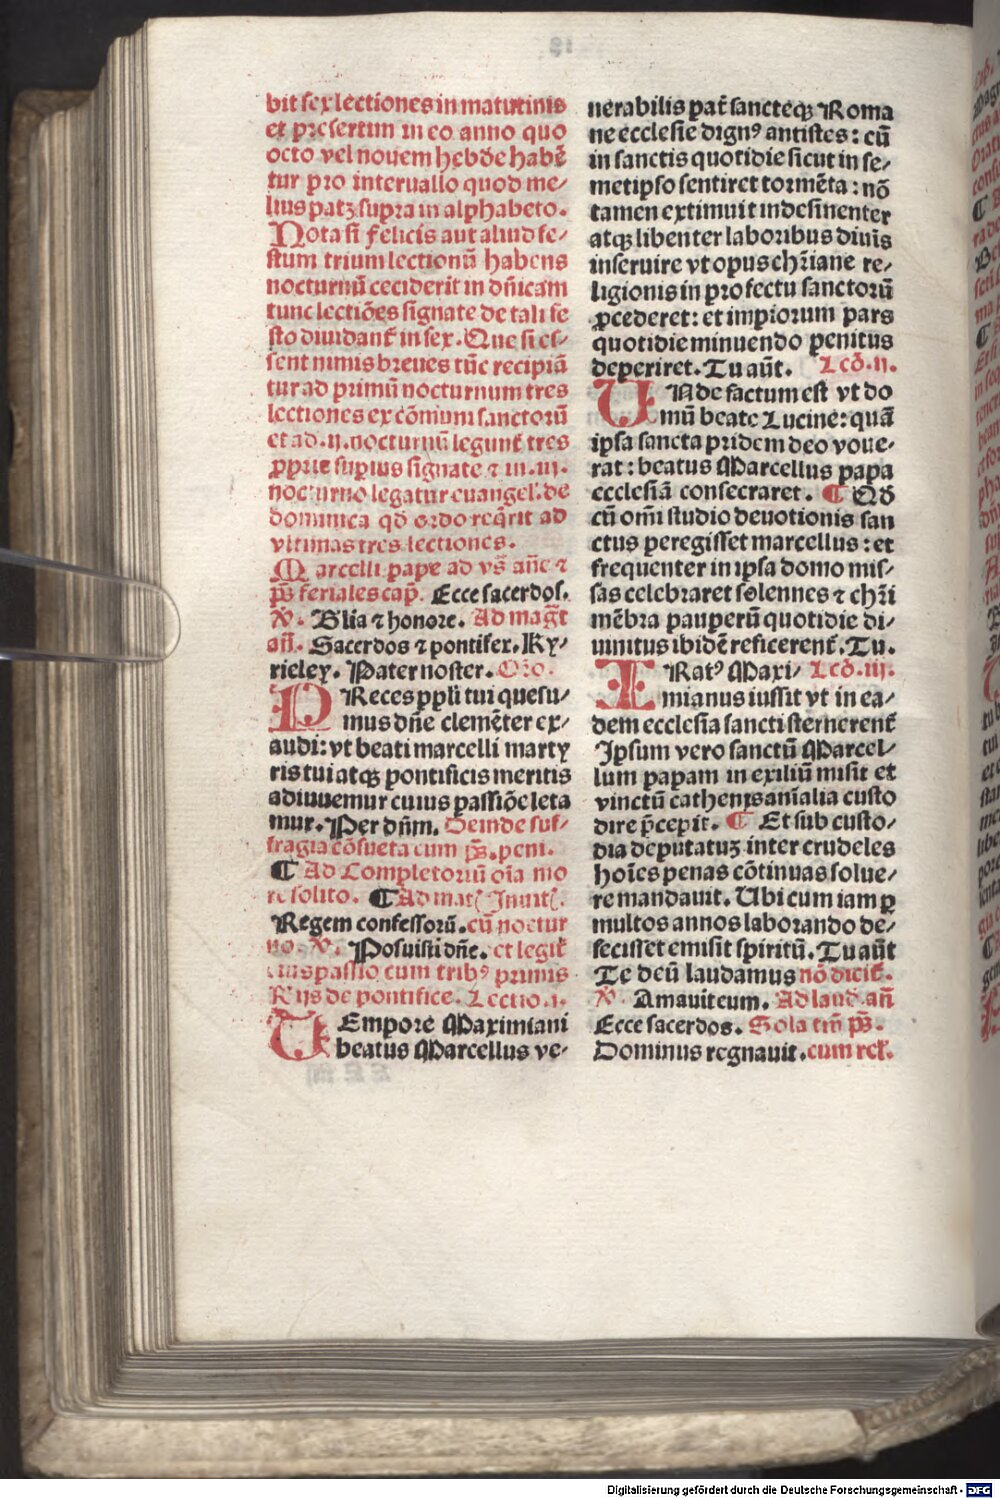 bit sex lectiones in matutinis
et presertim in eo anno quo
octo vel nouem hebde habē
tur pro interuallo quod me/
lius patꝫ supra in alphabeto.
Nota si felicis aut aliud fe/
stum trium lectionū habens
nocturnū ceciderit in dn̄icam
tunc lectiōes signate de tali fe
sto diuidant̄ in sex. Que si es/
sent nimis breues tūc recipiā
tur ad primū nocturnum tres
lectiones ex cōmium sanctorū
et ad .ij. nocturnū legunt̄ tres
ꝓprie supius signate ⁊ in .iij.
nocturno legatur euangel̓. de
dominica qd̄ ordo req̄rit ad
vltimas tres lectiones.
Marcelli pape ad vs̄ an̄e ⁊
ps̄ feriales cap̄. Ecce sacerdos.
℣. Gl̓ia ⁊ honore. Ad magt̄
an̄. Sacerdos ⁊ pontifex. Ky/
rieley. Pater noster. Or̄o.
PReces ppl̓i tui quesu/
mus dn̄e clemēter ex/
audi: vt beati marcelli marty
ris tui atqꝫ pontificis meritis
adiuuemur cuius passiōe leta
mur. Per dn̄m. Deinde suf/
fragia cōsueta cum ps̄. peni.
¶ Ad Completoriū oīa mo
re solito. ¶ Ad mat̄ Inuit̄.
Regem confessorū. cū noctur
no. ℣. Posuisti dn̄e. et legit̄
eius passio cum tribꝰ primis
Rijs de pontifice. Lectio .i.
TEmpore Maximiani
beatus Marcellus ve/
nerabilis pat̄ sancteqꝫ Roma
ne ecclesie dignꝰ antistes: cū
in sanctis quotidie sicut in se/
metipso sentiret tormēta: nō
tamen extimuit indesinenter
atqꝫ libenter laboribus diuīs
inseruire vt opus chr̄iane re/
ligionis in profectu sanctorū
ꝓcederet: et impiorum pars
quotidie minuendo penitus
deperiret. Tu aūt. Lcō. ij.
UNde factum est vt do
mū beate Lucine: quā
ipsa sancta pridem deo voue/
rat: beatus Marcellus papa
ecclesiā consecraret. ¶ Qd̄
cū om̄i studio deuotionis san
ctus peregisset marcellus: et
frequenter in ipsa domo mis/
sas celebraret solennes ⁊ chr̄i
mēbra pauperū quotidie di/
uinitus ibidē reficerent̄. Tu.
IRatꝰ Maxi/ Lcō. iij.
mianus iussit vt in ea/
dem ecclesia sancti sternerent̄
Ipsum vero sanctū Marcel/
lum papam in exiliū misit et
vinctū cathenis animalia custo
dire p̄cepit. ¶ Et sub custo/
dia deputatuꝫ inter crudeles
hoīes penas cōtinuas solue/
re mandauit. Ubi cum iam ꝑ
multos annos laborando de/
fecisset emisit spiritū. Tu aūt
Te deū laudamus nō dicit̄.
℣. Amauit eum. Ad laud̓. an̄
Ecce sacerdos. Sola tm̄ ps̄.
Dominus regnauit. cum rel̓.
Digitalisierung gefördert durch die Deutsche Forschungsgemeinschaft - DFG